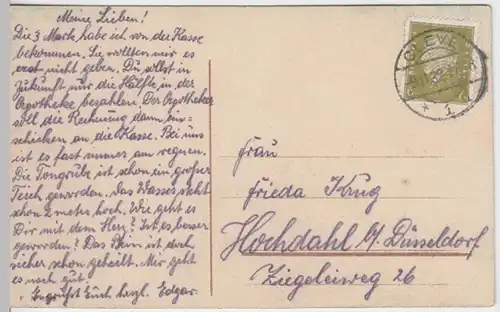 Meine Lieben!
Die 3 Mark, habe ich von der Kasse
bekommen. Sie wollten mir es
erst nicht geben. Du sollst in
Zukunft nur die Hälfte in der
Apotheke bezahlen. Der Apotheker
soll die Rechnung dann ein-
schicken an die Kasse. Bei uns
ist es fast immer am regnen.
Die Tongrube ist schon ein großer
Teich geworden. Das Wasser steht
schon 2 mehr hoch. Wie geht es
Dir mit dem Herz? Ist es besser
geworden? Das Bein ist doch
sicher schon geheilt. Mir geht
es noch gut.
Es grüßt Euch herzl. Edgar.
CLEVE
1
Frau
Frieda Krug
Hochdahl b/ Düsseldorf
Ziegeleiweg 26